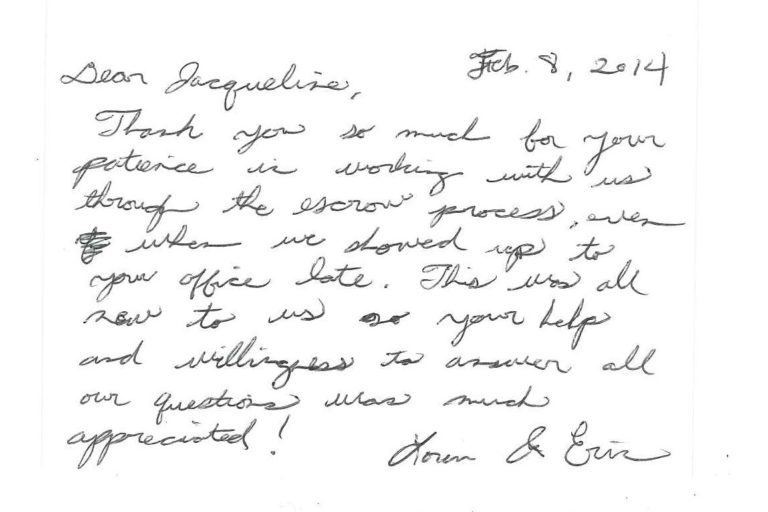 Feb. 8, 2014
Dear Jacqueline,
Thank you so much for your
patience in working with us
through the escrow process, even
when we showed up to
your office late. This was all
new to us so your help
and willingness to answer all
our questions was much
appreciated!
& Eric